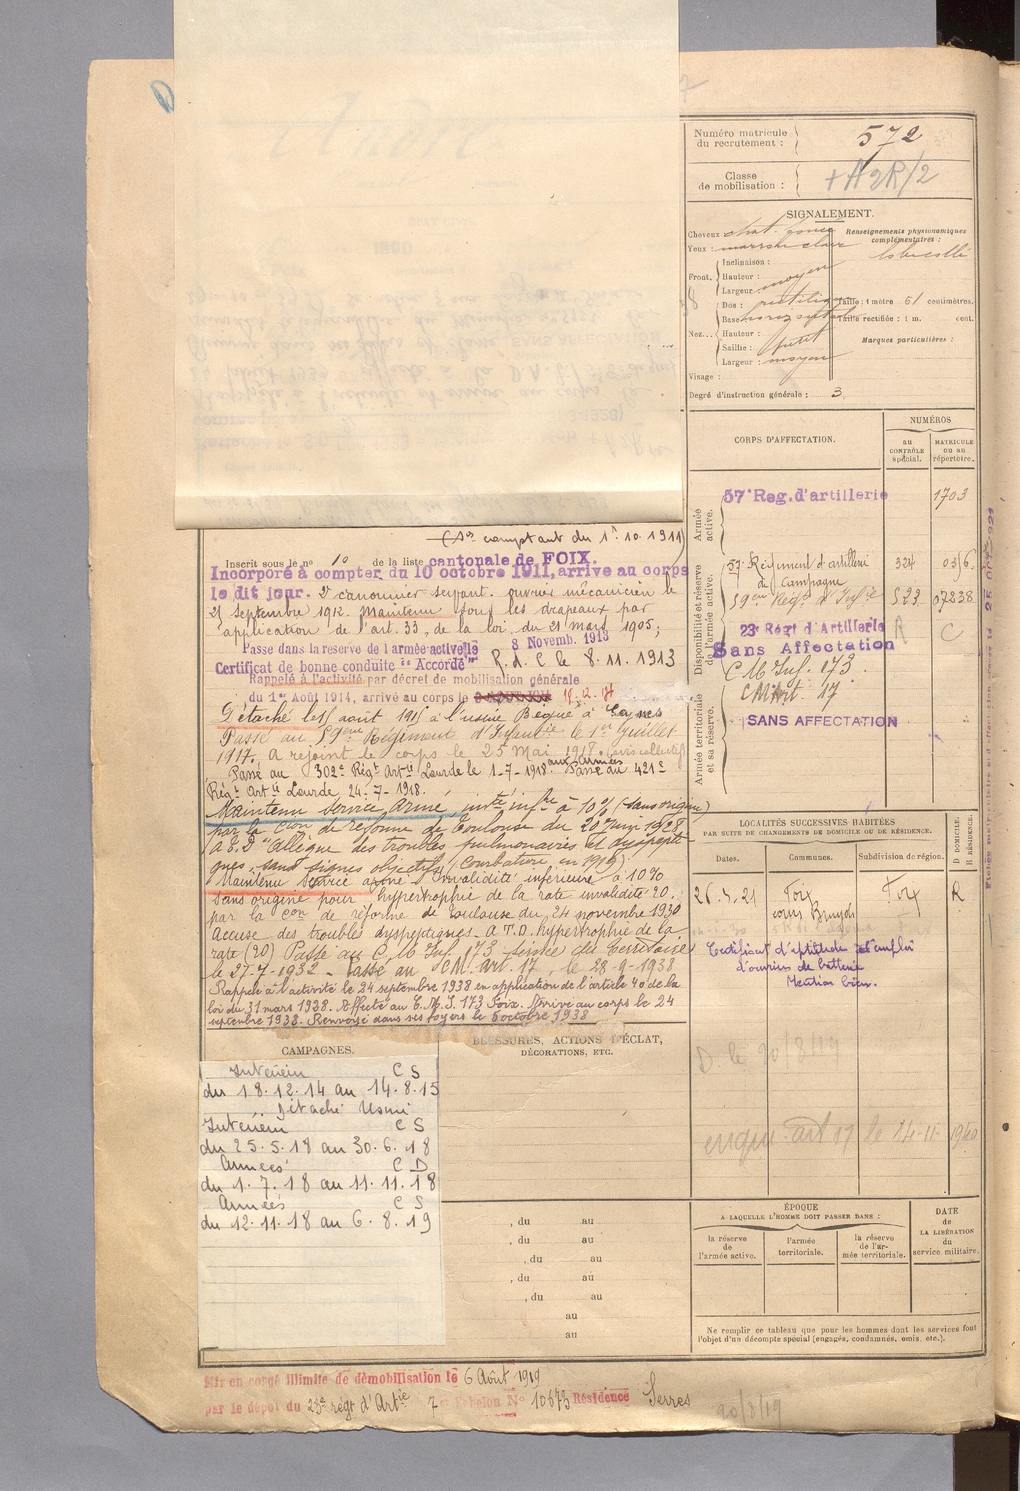 Numéro matricule du recrutement : 572
Classe de mobilisation : + A 2R/2
SIGNALEMENT.
Cheveux chat. foncé
Yeux : marron clair
Renseignements physionomiques complémentaires :
Front.
Inclinaison :
Hauteur :
Largeur : moyen
Nez...
Dos : rectiligne
Base horizontale
Hauteur :
Saillie : petit
Largeur : moyen
Taille : 1 mètre 61 centimètres.
Taille rectifiée : 1 m. cent.
Marques particulières :
Visage :
Degré d'instruction générale : 3
CORPS D'AFFECTATION.
NUMÉROS
au contrôle spécial.
MATRICULE ou au répertoire.
Armée active.
57e Reg. d'artillerie 1703
Disponibilité et réserve de l'armée active.
57e Régiment d'artillerie 324
de Campagne
59em Régt d'Infie 523 07238
23e Régt d'Artillerie R C
Sans Affectation
C M Inf. 173
Armée territoriale et sa réserve.
CM Art 17
SANS AFFECTATION
(Ser comptant du 1er 10. 1911)
Inscrit sous le n° 10 de la liste cantonale de FOIX.
Incorporé à compter du 10 octobre 1911, arrive au corps
le dit jour. 2e canonnier servant. ouvrier mécanicien le
21 Septembre 1912. Maintenu sous les drapeaux par
application de l'art. 33, de la loi du 21 mars 1905;
Passe dans la reserve de l'armée active le 8 Novemb. 1913
Certificat de bonne conduite "Accordé" R. d. C le 8. 11. 1913
Rappelé à l'activité par décret de mobilisation générale
du 1er Août 1914, arrivé au corps le 18.12.14
Détaché le 15 août 1915 à l'usine Bègué à
Passé au 59eme Régiment d'Infantie le 1er juillet
1917. A rejoint le corps le 25 Mai 1918. (avis collectif)
aux Armées
Passé au 302e Régt Artie Lourde le 1-7-1918. Passé au 421e
Régt Artie Lourde 24-7-1918.
Maintenu service armé, invté infre à 10% (sans origine)
par la Cion de réforme de Toulouse du 20 juin 1928
A.E.D "Allègue des troubles pulmonaires et dyspepti-
ques, sans signes objectifs (Combattre en 1919)
Maintenu Service armé invalidité inférieure à 10%
sans origine pour hypertrophie de la rate invalidité 20.
par la Con de réforme de Toulouse du 24 novembre 1930
Accuse des troubles dyspeptiques - A.T.D. hypertrophie de la
rate (20) Passé au C. M. Inf. 173 service du Territoire
le 27-7-1932 - Passé au CM. Art. 17, le 28-9-1938
Rappelé à l'activité le 24 septembre 1938 en application de l'article 40 de la
loi du 31 mars 1928. Affecté au C.M.I. 173 Foix. Arrivé au corps le 24
septembre 1938. Renvoyé dans ses foyers le 6 octobre 1938
LOCALITÉS SUCCESSIVES HABITÉES
PAR SUITE DE CHANGEMENTS DE DOMICILE OU DE RÉSIDENCE.
Dates. Communes. Subdivision de région.
D. DOMICILE. R. RÉSIDENCE.
26.4.21 Foix Foix R
cours Bouychou
Certificat d'aptitude à l'emploi
d'ouvrier de batterie
Mention bien.
D le 20/8/19
art 17 le 14-11- 1940
CAMPAGNES.
Intérieur C S
du 18.12.14 au 14.8.15
Détaché Usine
Intérieur C S
du 25.5.18 au 30.6.18
Armées C D
du 1.7.18 au 11.11.18
Armées C S
du 12.11.18 au 6.8.19
BLESSURES, ACTIONS D'ÉCLAT,
DÉCORATIONS, ETC.
, du au
, du au
, du au
, du au
, du au
au
au
ÉPOQUE
A LAQUELLE L'HOMME DOIT PASSER DANS :
la réserve de l'armée active.
l'armée territoriale.
la réserve de l'armée territoriale.
DATE de LA LIBÉRATION du service militaire.
Ne remplir ce tableau que pour les hommes dont les services font
l'objet d'un décompte spécial (engagés, condamnés, omis, etc.).
Mis en congé illimité de démobilisation le 6 Août 1919
par le dépôt du 23e régt d'Artie 7e Echelon N° 10673 Résidence Serres
20/8/19